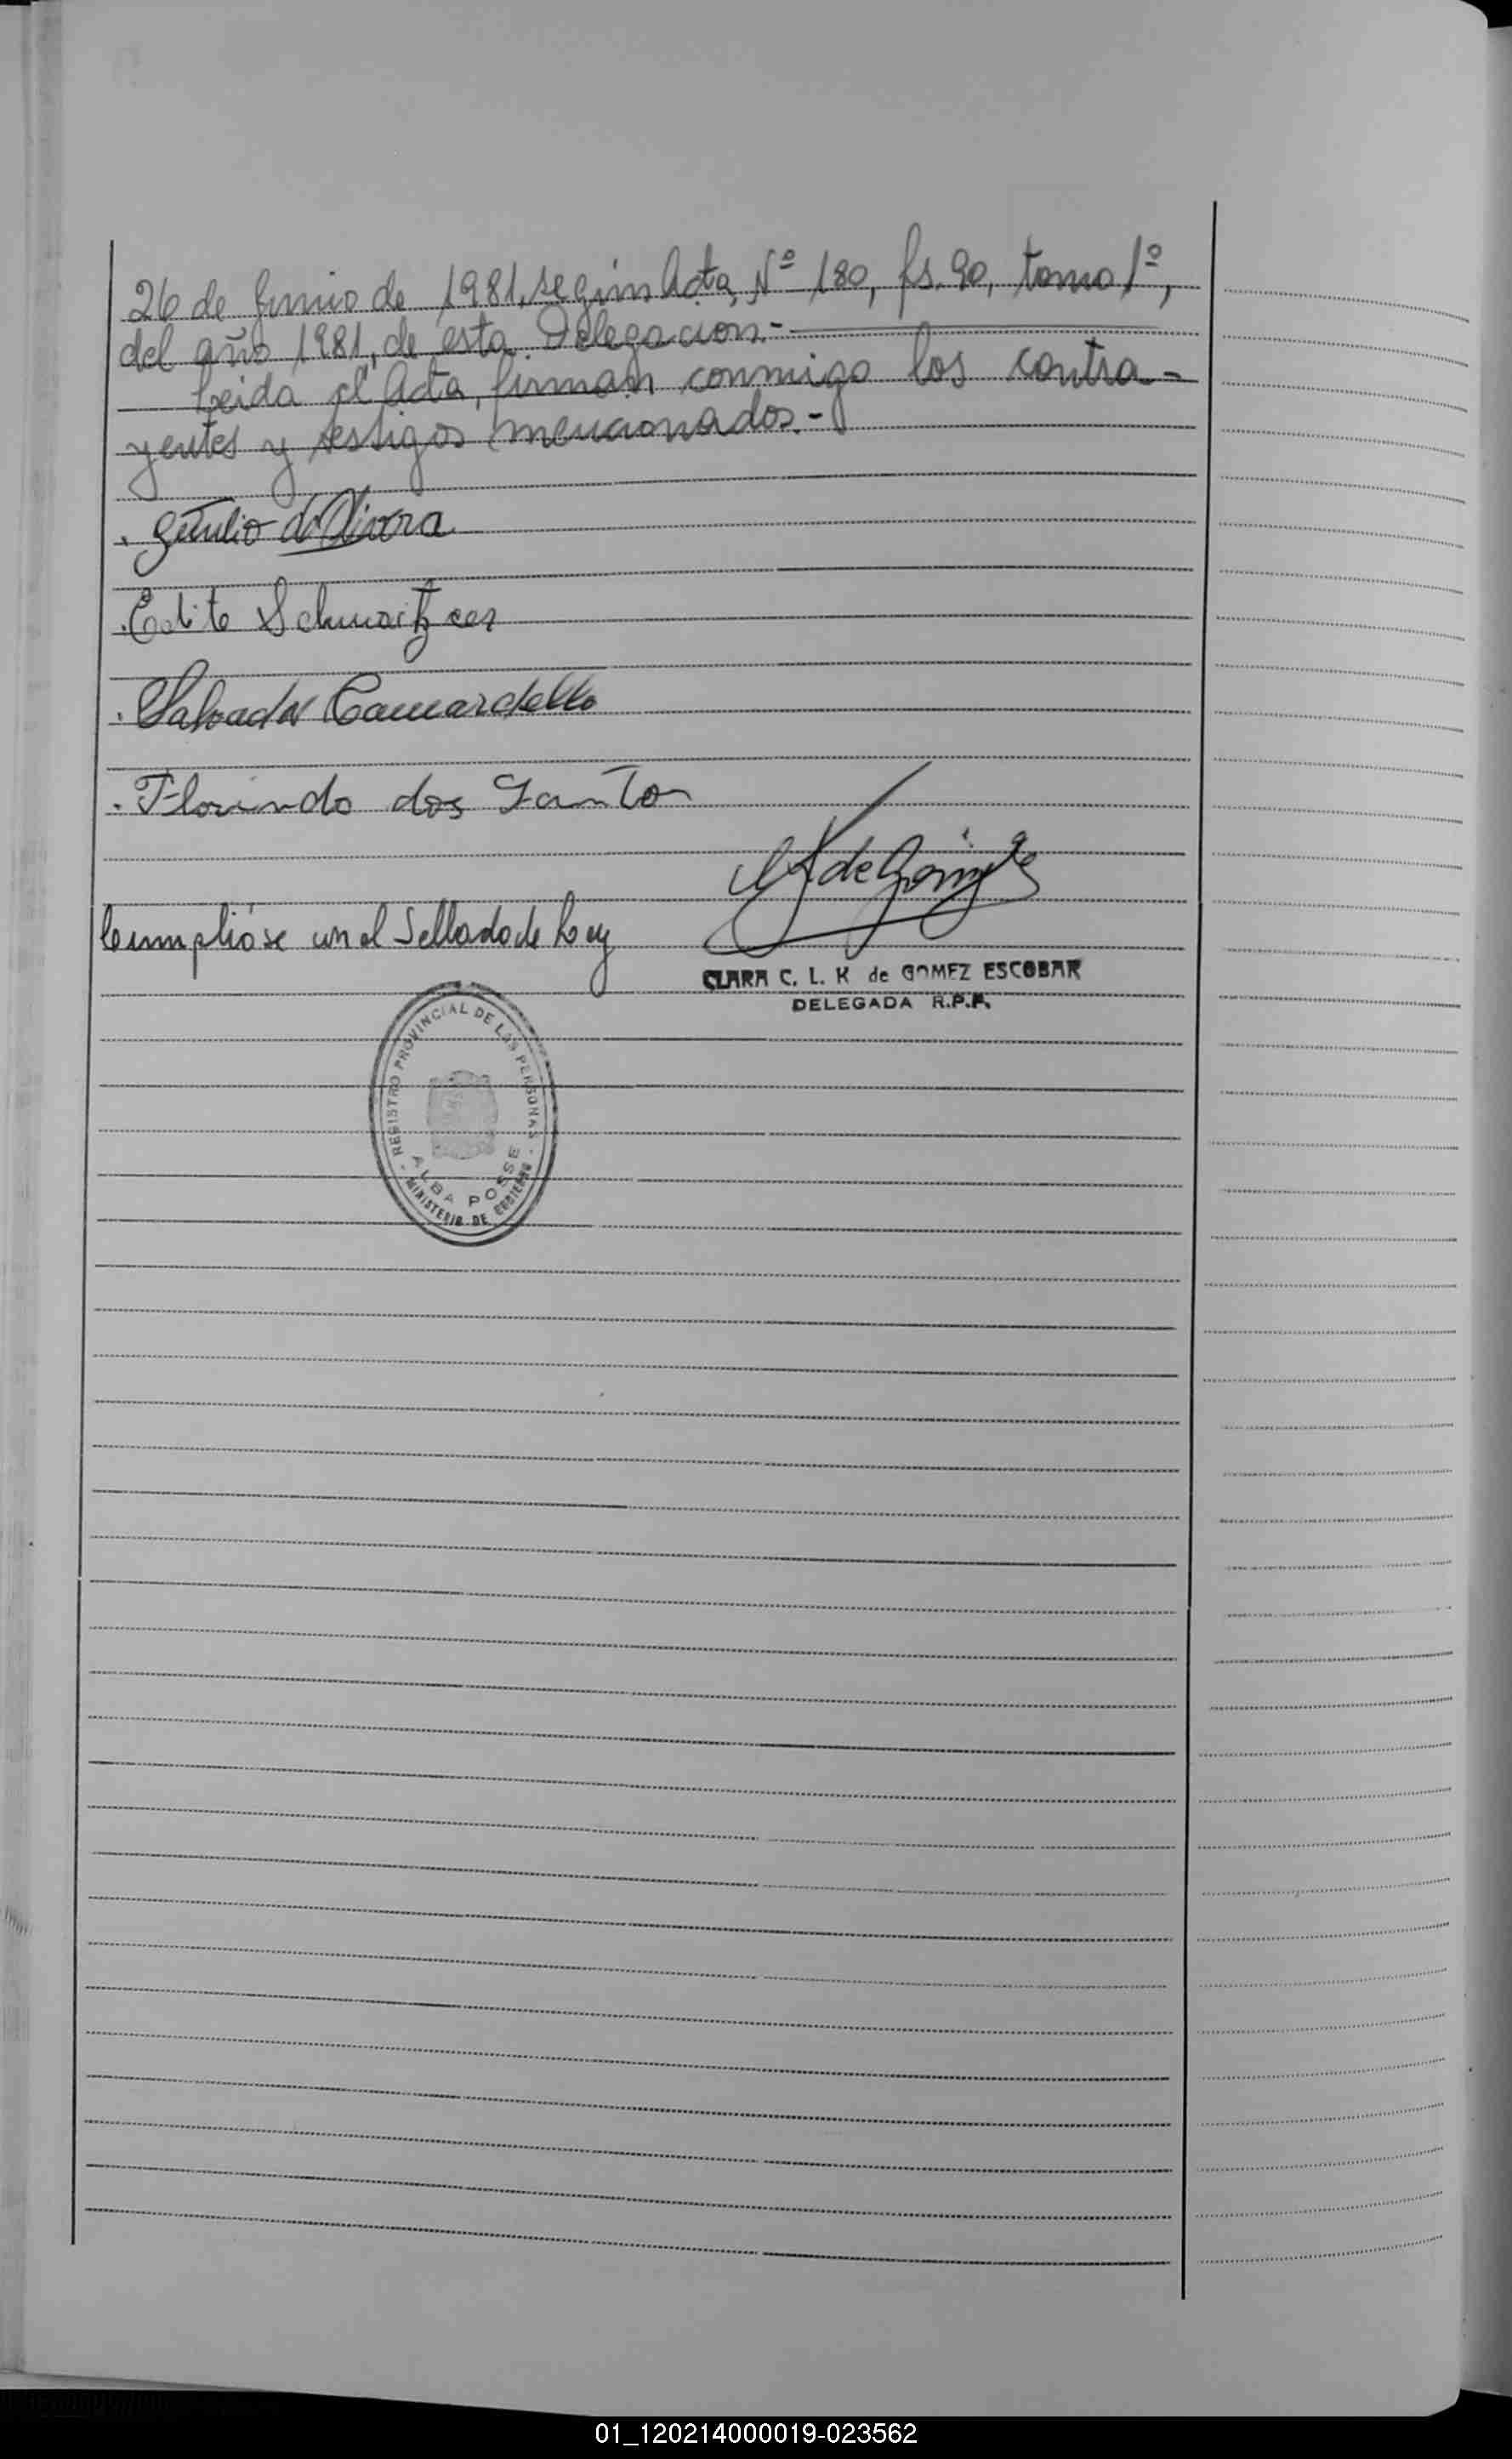 26 de Junio de 1981, según Acta Nº 180, fs. 90, tomo 1º,
del año 1981, de esta Delegación.-
Leida el Acta, firman conmigo los contra-
yentes y testigos mencionados.-
Getulio d Olivera
Edite Schwaitzer
Salvador Camardello
Florindo dos Santo
de Gómez
Cumplióse con el Sellado de Ley
CLARA C. L. K de GOMEZ ESCOBAR
DELEGADA R.P.P.
REGISTRO PROVINCIAL DE LAS PERSONAS
ALBA POSSE
MINISTERIO DE GOBIERNO
01_120214000019-023562